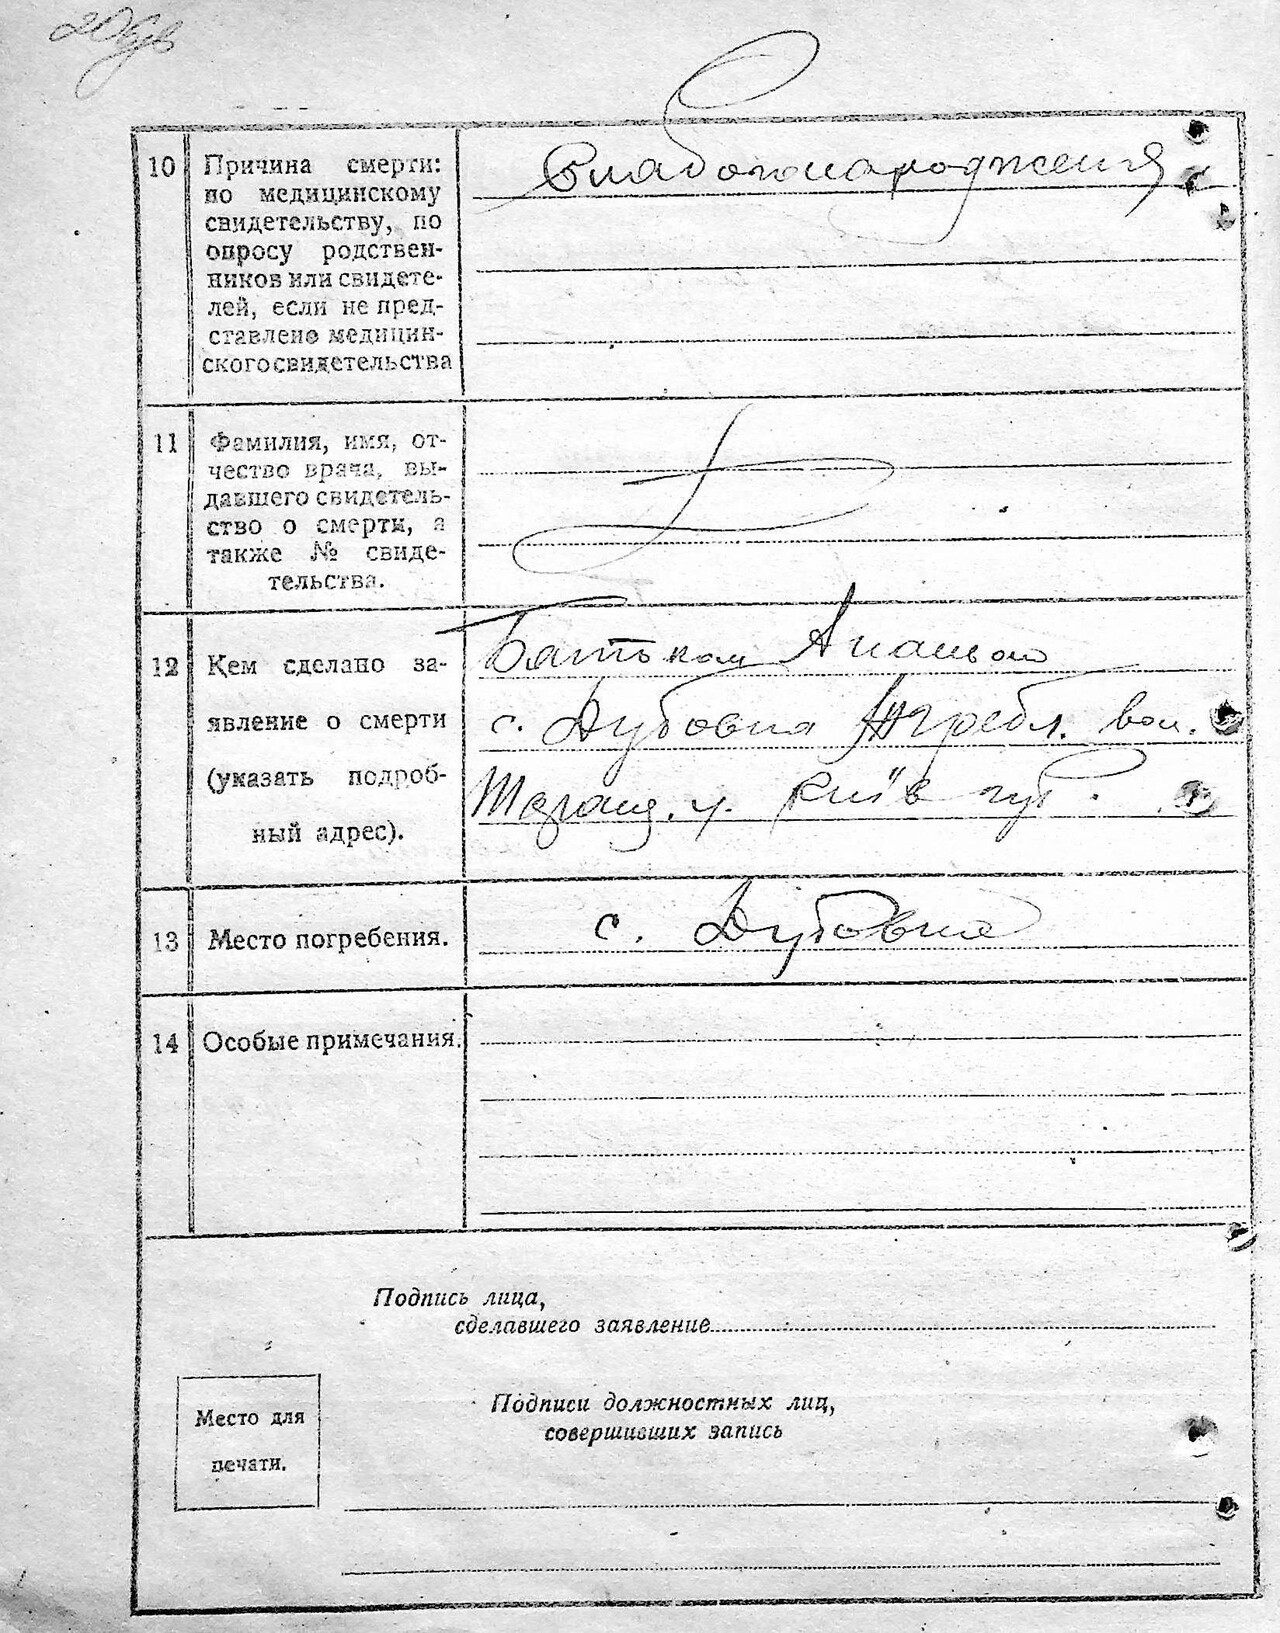 10
Причина смерти:
по медицинскому
свидетельству, по
опросу родствен-
ников или свидете-
лей, если не пред-
ставлено медицин-
ского свидетельства
Слабонародження
11
Фамилия, имя, от-
чество врача, вы-
давшего свидетель-
ство о смерти, а
также № свиде-
тельства.
12
Кем сделано за-
явление о смерти
(указать подроб-
ный адрес).
Батьком
с. Дубовка вол.
Таращ. у. Київ губ.
13
Место погребения.
с. Дубовка
14
Особые примечания.
Подпись лица,
сделавшего заявление
Место для
печати.
Подписи должностных лиц,
совершивших запись